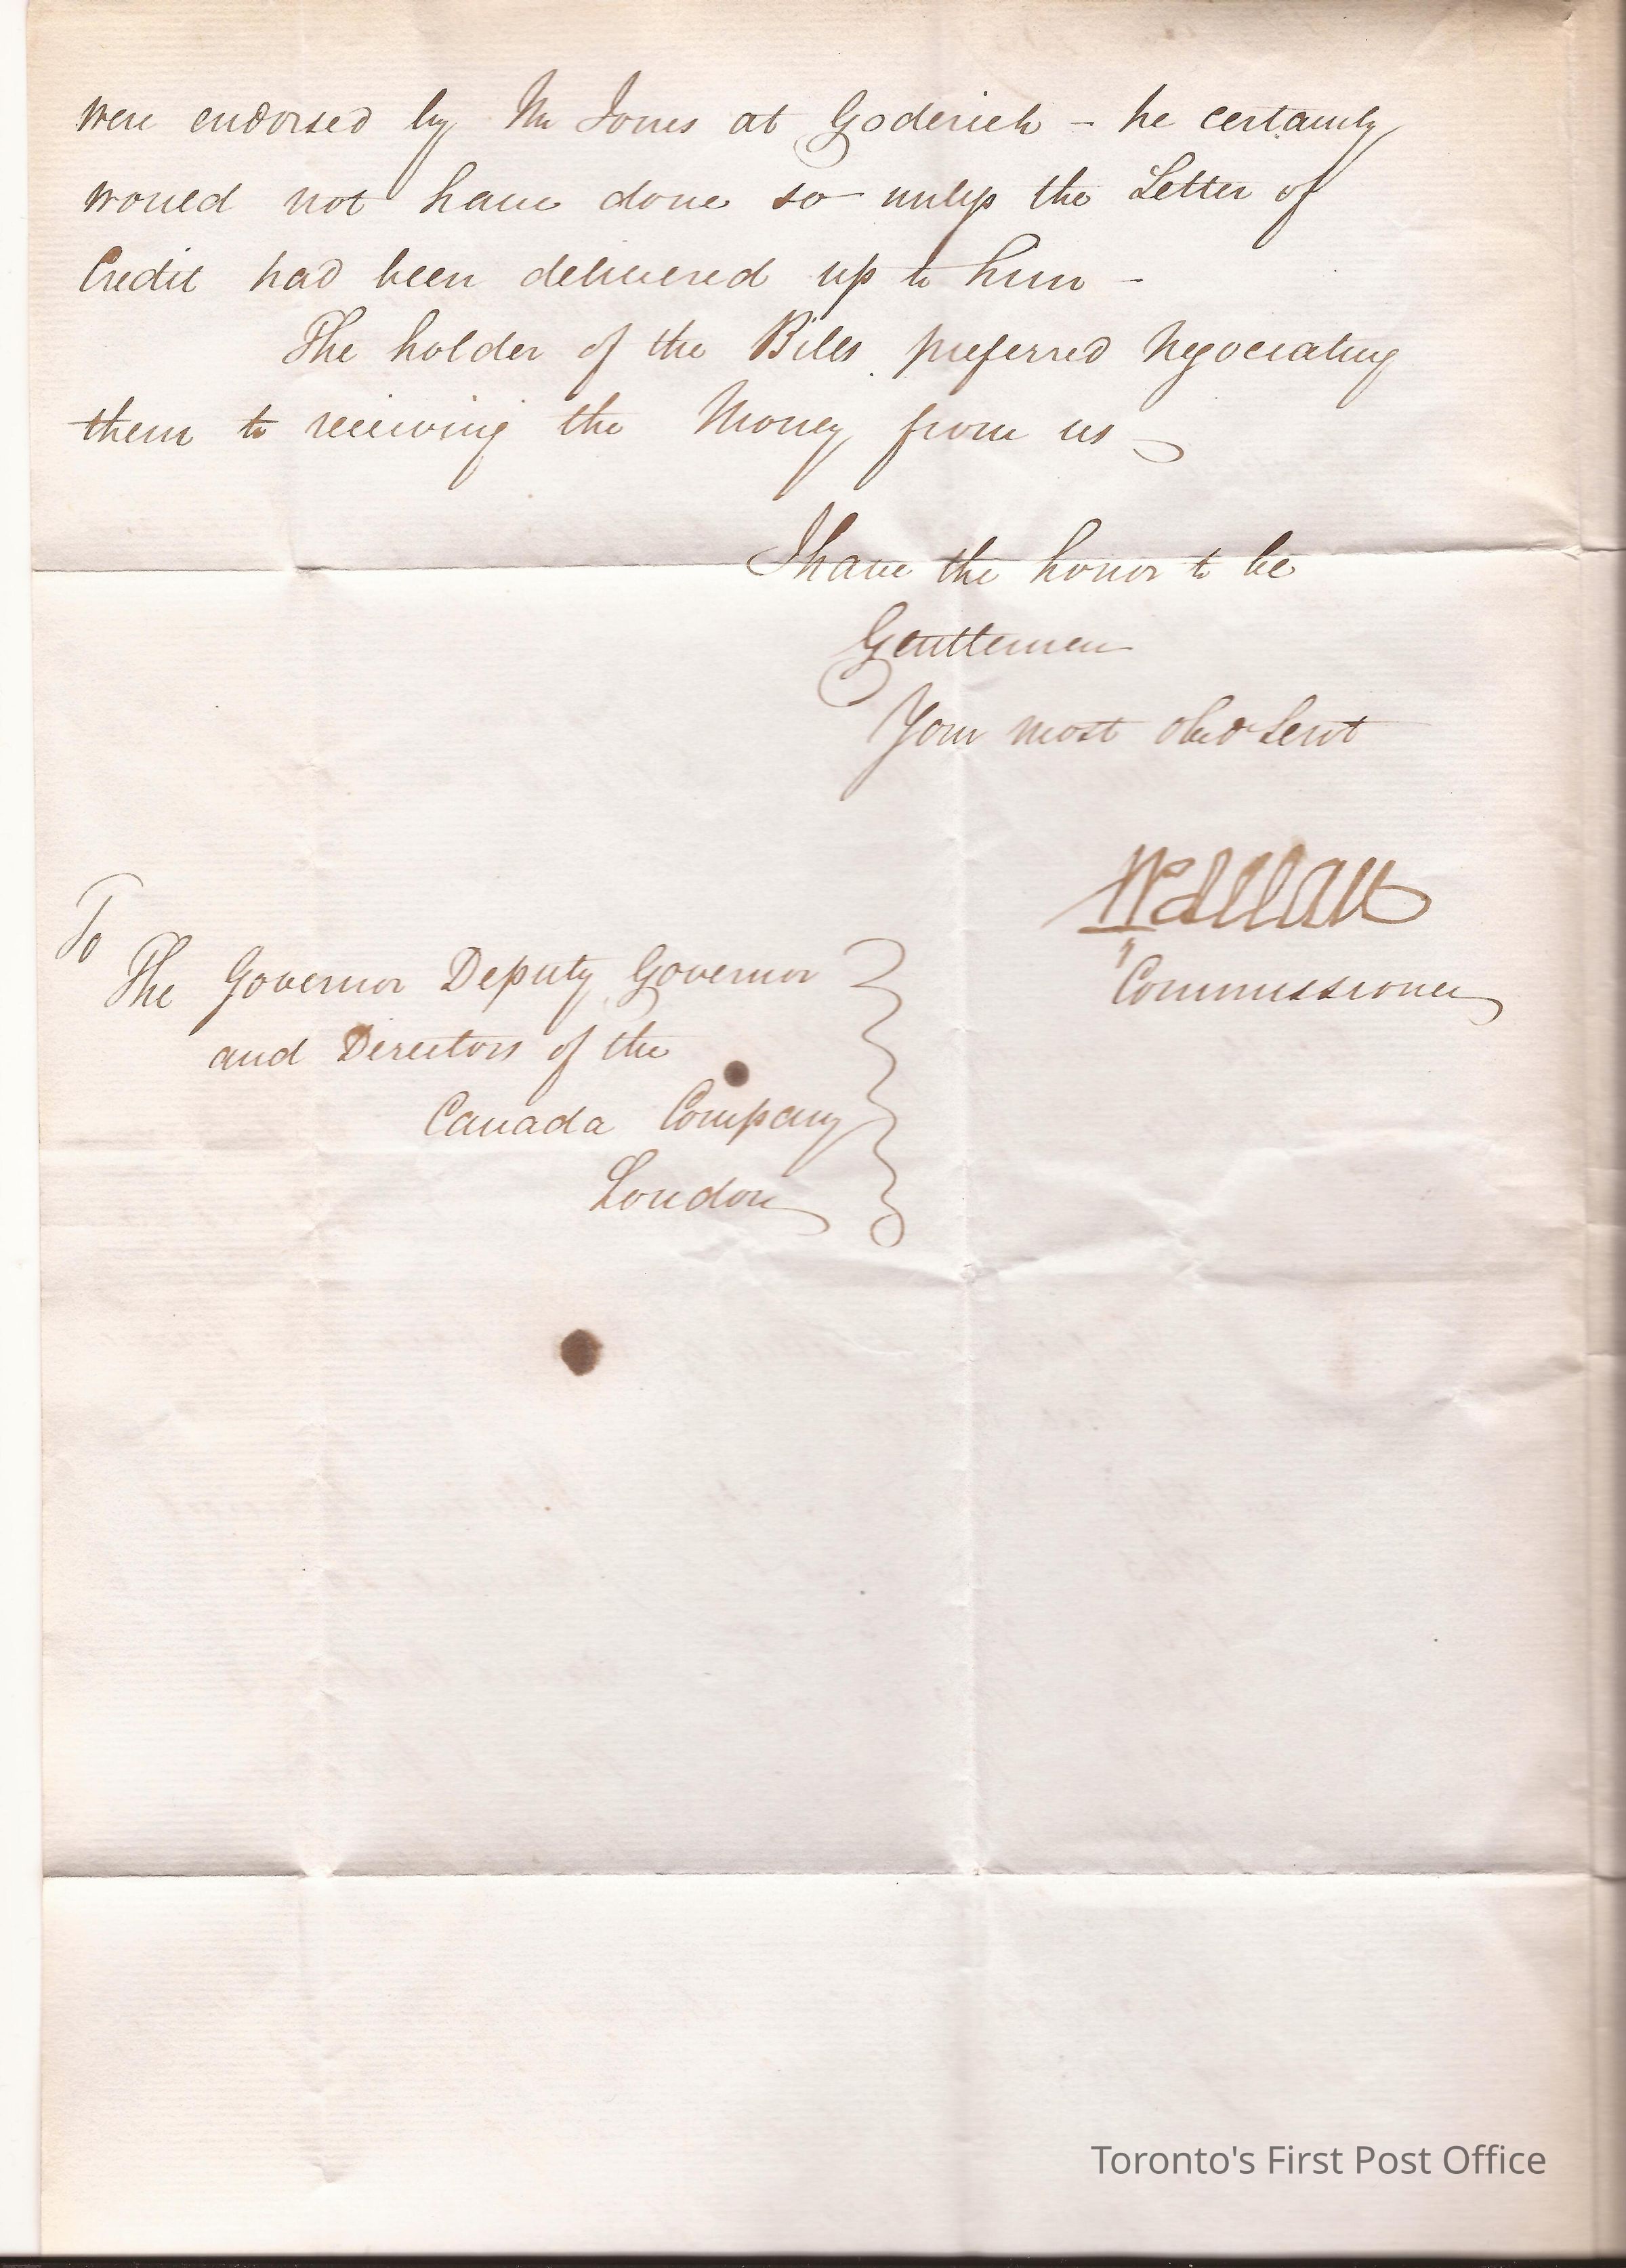 were endorsed by Mr Jones at Goderich - he certainly
would not have done so unless the Letter of
Credit had been delivered up to him -
The holder of the Bills preferred negociating
them to receiving the Money from us
I have the honor to be
Gentlemen
Your most obedt Servt
W Allan
Commissioner
To
The Governor Deputy Governor
and Directors of the
Canada Company
London
Toronto's First Post Office